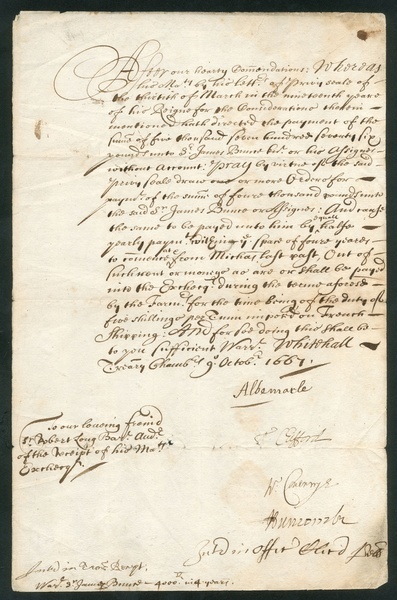 After our hearty Comendations: Whereas
his Ma:ty by his Letters of privy seale of
the thirtieth of March in the nineteenth yeare
of his Reigne for the Considerations therein
mentioned hath directed the payment of the
sume of five thousand seven hundred seventy six
pounds unto Sr. James Bunce his or his Assignes
without Account: Pray by virtue of the said
privy seale draw one or more Orders for
paymt. of the sume of foure thousand pounds unto
the said Sr. James Bunce or Assignes: And cause
the same to be paid unto him by equall halfe
yearly paymts. within ye space of foure yeares
to comence from Michas. last past, Out of
such moneys as are or shall be payd
into the Excheqr. during the terme aforesd
by the Farmrs. for the time being of the duty of
five shillings per Tunn imposed on French
Shipping: And for soe doing this shall be
to you sufficient Warrt. Whitehall
Treãry Chambrs. 9o. Octobr. 1667.
Albemarle
T. Clifford
W. Coventrye
JDuncombe
To our loveing freind
Sr. Robert Long Barrt. Audr.
of the Receipt of his Mats
Excheqr.
Intd in Offic
Warrt. Sr. James Bunce 4000li in 4 years.